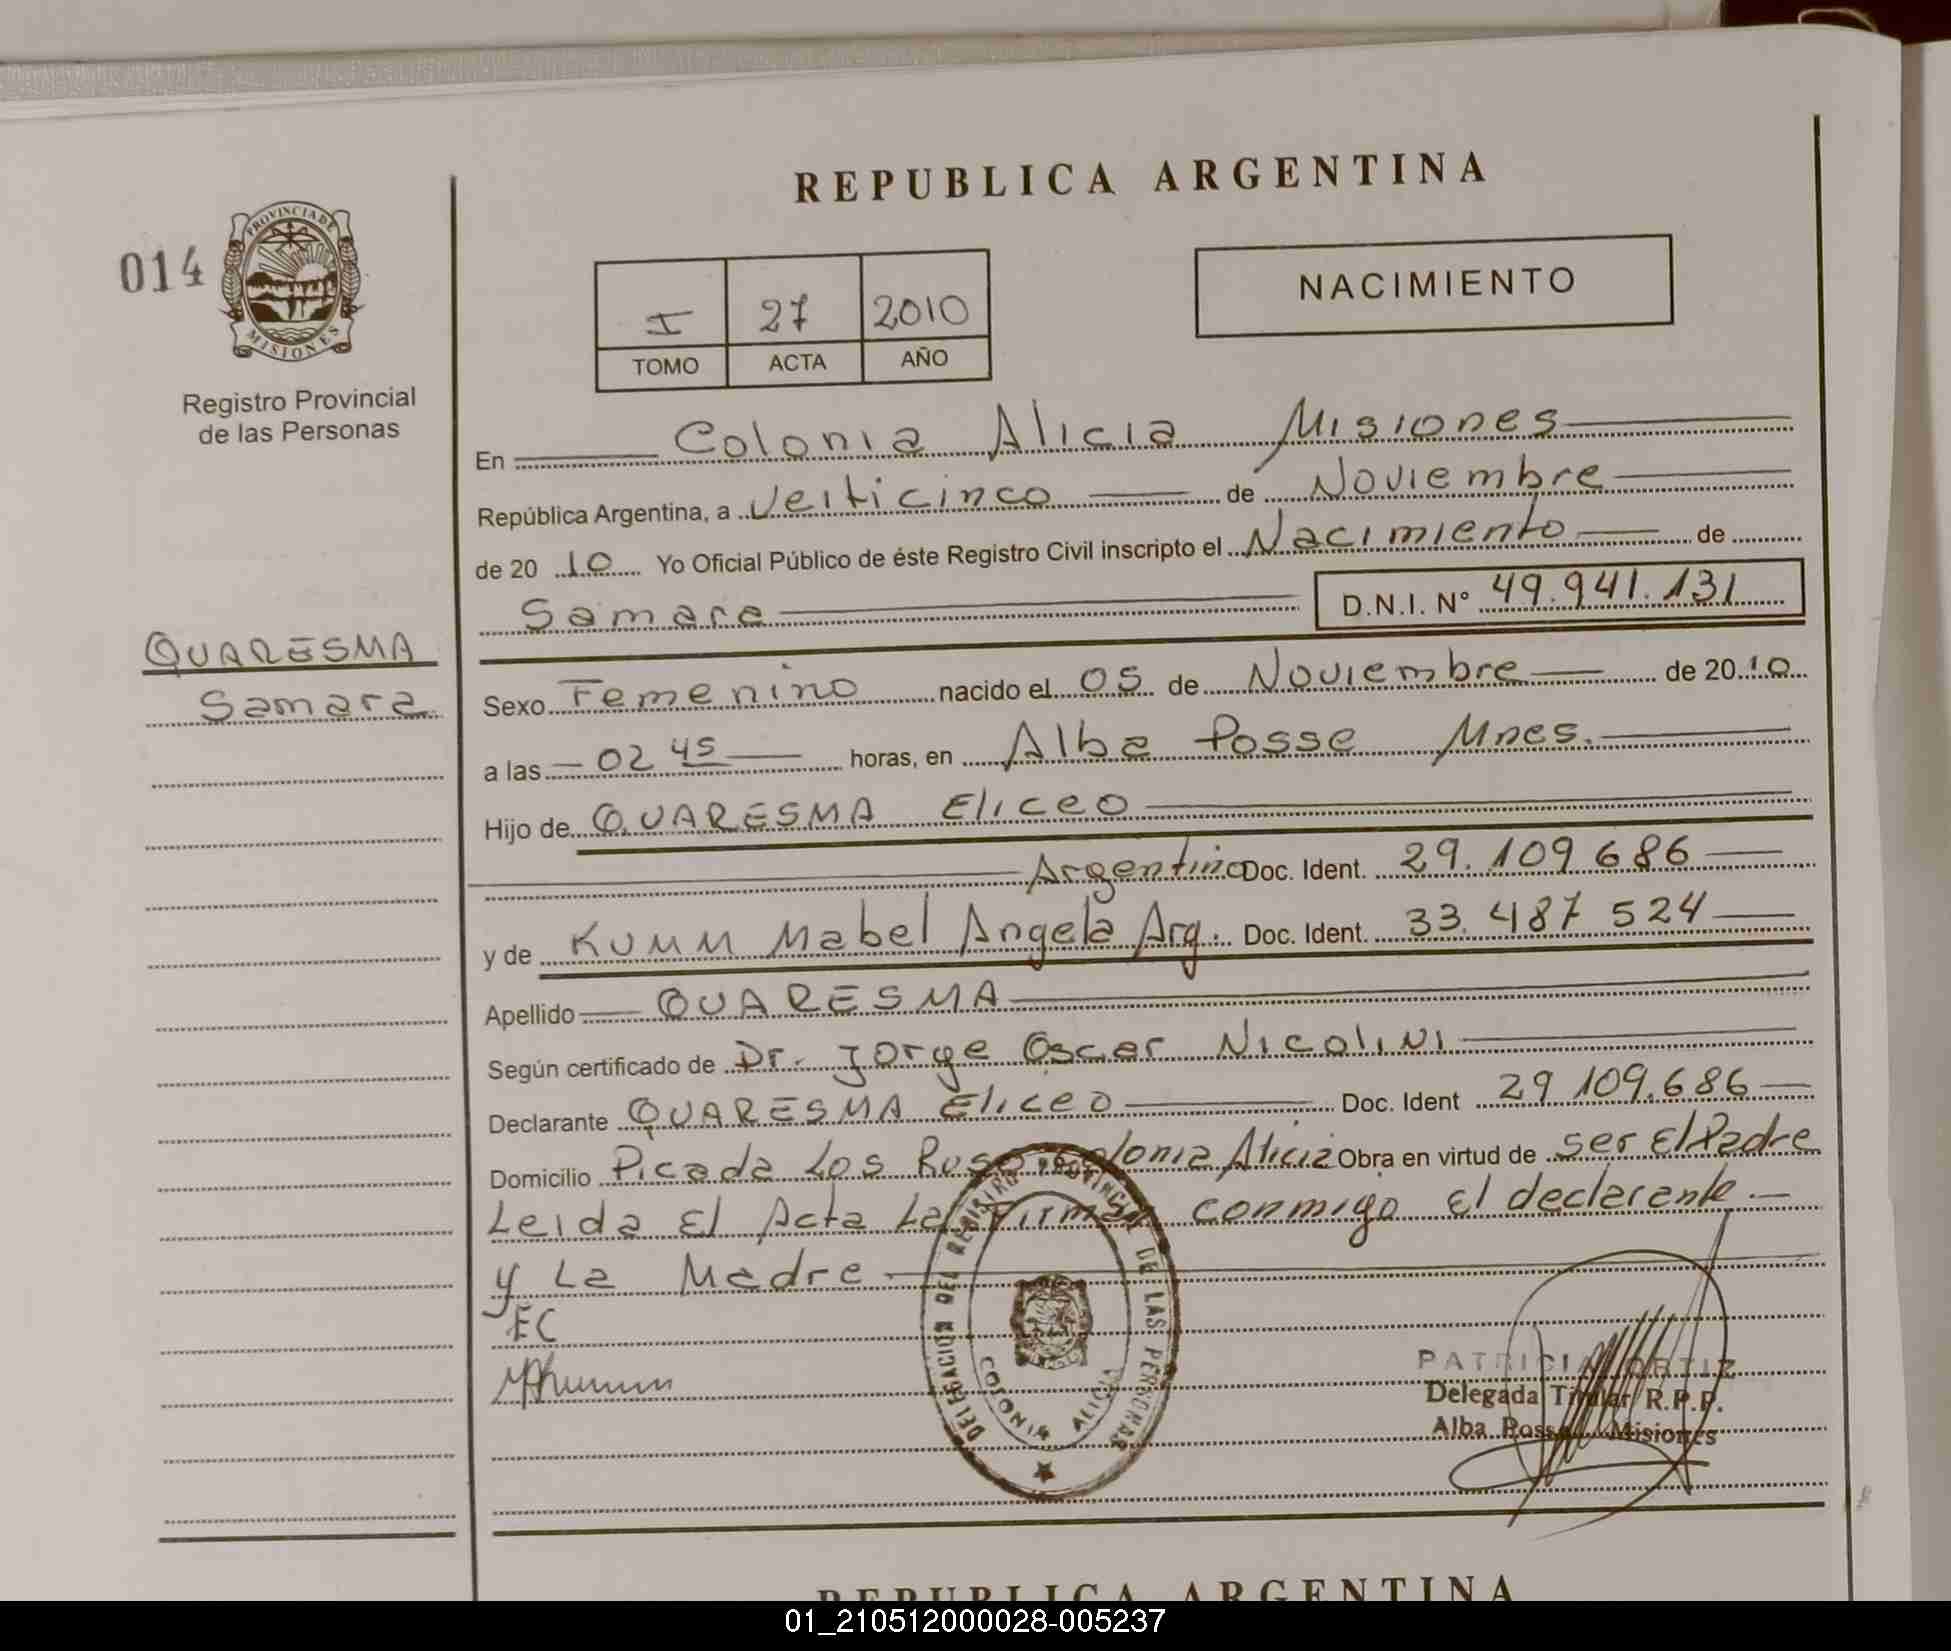 REPUBLICA ARGENTINA
014
PROVINCIA DE
MISIONES
Registro Provincial
de las Personas
I 27 2010
TOMO ACTA AÑO
NACIMIENTO
En Colonia Alicia Misiones
República Argentina, a Veiticinco de Noviembre
de 20 10 Yo Oficial Público de éste Registro Civil inscripto el Nacimiento de
Samara D.N.I. N° 49.941.131
QUARESMA
Samara
Sexo Femenino nacido el 05 de Noviembre de 20 10
a las 02 45 horas, en Alba Posse Mnes.
Hijo de QUARESMA Eliceo
Argentino Doc. Ident. 29.109.686
y de KUMM Mabel Angela Arg. Doc. Ident. 33.487 524
Apellido QUARESMA
Según certificado de Dr. Jorge Oscar Nicolini
Declarante QUARESMA Eliceo Doc. Ident 29 109.686
Domicilio Picada Los Rusos Colonia Alicia Obra en virtud de ser El Padre
Leida El Acta La Firman conmigo El declarante.
y La Madre
EC
DELEGACION DEL REGISTRO PROVINCIAL DE LAS PERSONAS
COLONIA ALICIA
PATRICIA ORTIZ
Delegada Titular R.P.P.
Alba Posse Misiones
REPUBLICA ARGENTINA
01_210512000028-005237